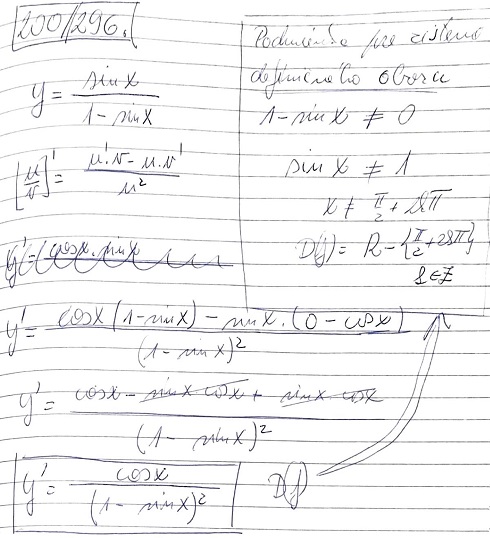 200/296.
y = sinx / 1 - sinx
[u/v]' = u'.v - u.v' / u²
y' = cosx . sinx
y' = cosx (1 - sinx) - sinx . (0 - cosx) / (1 - sinx)²
y' = cosx - sinx cosx + sinx cosx / (1 - sinx)²
y' = cosx / (1 - sinx)²
D(f)
Podmienka pre zistenie
definičného oboru
1 - sinx ≠ 0
sinx ≠ 1
x ≠ π/2 + 2kπ
D(f) = R - {π/2 + 2kπ}
k ∈ Z